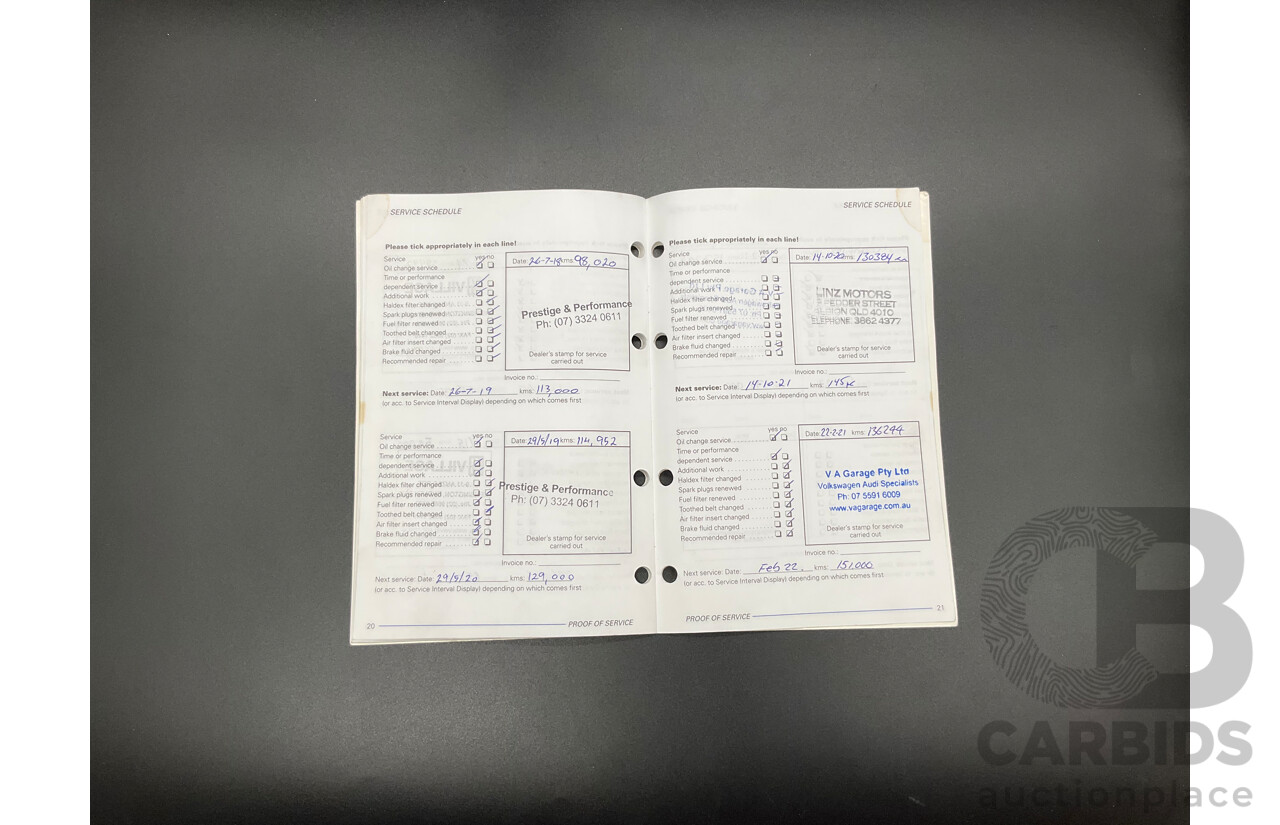 SERVICE SCHEDULE
Please tick appropriately in each line!
Service yes no
Oil change service
Time or performance
dependent service
Additional work
Haldex filter changed
Spark plugs renewed
Fuel filter renewed
Toothed belt changed
Air filter insert changed
Brake fluid changed
Recommended repair
Date: 26-7-18 kms: 98,020
Prestige & Performance
Ph: (07) 3324 0611
Dealer's stamp for service
carried out
Invoice no.:
Next service: Date: 26-7-19 kms: 113,000
(or acc. to Service Interval Display) depending on which comes first
Service yes no
Oil change service
Time or performance
dependent service
Additional work
Haldex filter changed
Spark plugs renewed
Fuel filter renewed
Toothed belt changed
Air filter insert changed
Brake fluid changed
Recommended repair
Date: 29/5/19 kms: 114,952
Prestige & Performance
Ph: (07) 3324 0611
Dealer's stamp for service
carried out
Invoice no.:
Next service: Date: 29/5/20 kms: 129,000
(or acc. to Service Interval Display) depending on which comes first
20 PROOF OF SERVICE
SERVICE SCHEDULE
Please tick appropriately in each line!
Service yes no
Oil change service
Time or performance
dependent service
Additional work
Haldex filter changed
Spark plugs renewed
Fuel filter renewed
Toothed belt changed
Air filter insert changed
Brake fluid changed
Recommended repair
Date: 14-10-20 kms: 130384
LINZ MOTORS
PEDDER STREET
QLD 4010
TELEPHONE: 3862 4377
Dealer's stamp for service
carried out
Invoice no.:
Next service: Date: 14-10-21 kms: 145K
(or acc. to Service Interval Display) depending on which comes first
Service yes no
Oil change service
Time or performance
dependent service
Additional work
Haldex filter changed
Spark plugs renewed
Fuel filter renewed
Toothed belt changed
Air filter insert changed
Brake fluid changed
Recommended repair
Date: 22-2-21 kms: 136244
V A Garage Pty Ltd
Volkswagen Audi Specialists
Ph: 07 5591 6009
www.vagarage.com.au
Dealer's stamp for service
carried out
Invoice no.:
Next service: Date: Feb 22. kms: 151,000
(or acc. to Service Interval Display) depending on which comes first
PROOF OF SERVICE 21
CARBIDS
auctionplace